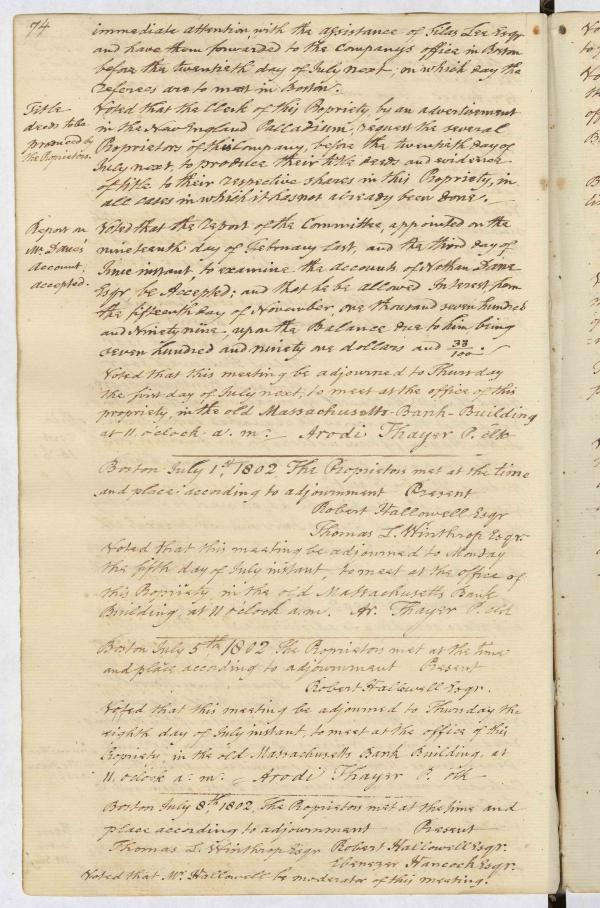 74
immediate attention with the assistance of Silas Lee Esqr
and have them forwarded to the Companys office in Boston
before the twentieth day of July next, on which day the
referees are to meet in Boston.
Title
deeds to be
produced by
the Proprietors.
Voted that the Clerk of this Propriety by an advertisement
in the New England Palladium, request the several
Proprietors of this Company, before the twentieth day of
July next, to produce their title deeds and evidence
of title to their respective shares in this Propriety, in
all cases in which it has not already been done.
Report on
Mr. Danes'
account,
accepted.
Voted that the report of the Committee, appointed on the
nineteenth day of February last, and the third day of
June instant, to examine the accounts of Nathan Dane
Esqr be Accepted; and that he be allowed Interest from
the fifteenth day of November, one thousand seven hundred
and Ninety nine, upon the Balance due to him being
seven hundred and ninety one dollars and 33/100.
Voted that this meeting be adjourned to Thursday
the first day of July next, to meet at the office of this
propriety, in the old Massachusetts-Bank-Building
at 11 oclock a. m. Arodi Thayer P. clk
Boston July 1st 1802 The Proprietors met at the time
and place according to adjournment Present
Robert Hallowell Esqr
Thomas L. Winthrop Esqr.
Voted that this meeting be adjourned to Monday
the fifth day of July instant, to meet at the office of
this Propriety, in the old Massachusetts Bank
Building, at 11 oclock a.m. Ar. Thayer P. clk
Boston July 5th 1802 The Proprietors met at the time
and place according to adjournment Present
Robert Hallowell Esqr.
Voted that this meeting be adjourned to Thursday the
eighth day of July instant, to meet at the office of this
Propriety, in the old Massachusetts Bank Building, at
11. oclock a: m: Arodi Thayer P. clk
Boston July 8th. 1802, The Proprietors met at the time and
place according to adjournment Present
Thomas L. Winthrop Esqr Robert Hallowell Esqr.
Ebenezer Hancock Esqr.
Voted that Mr. Hallowell be moderator of this meeting.